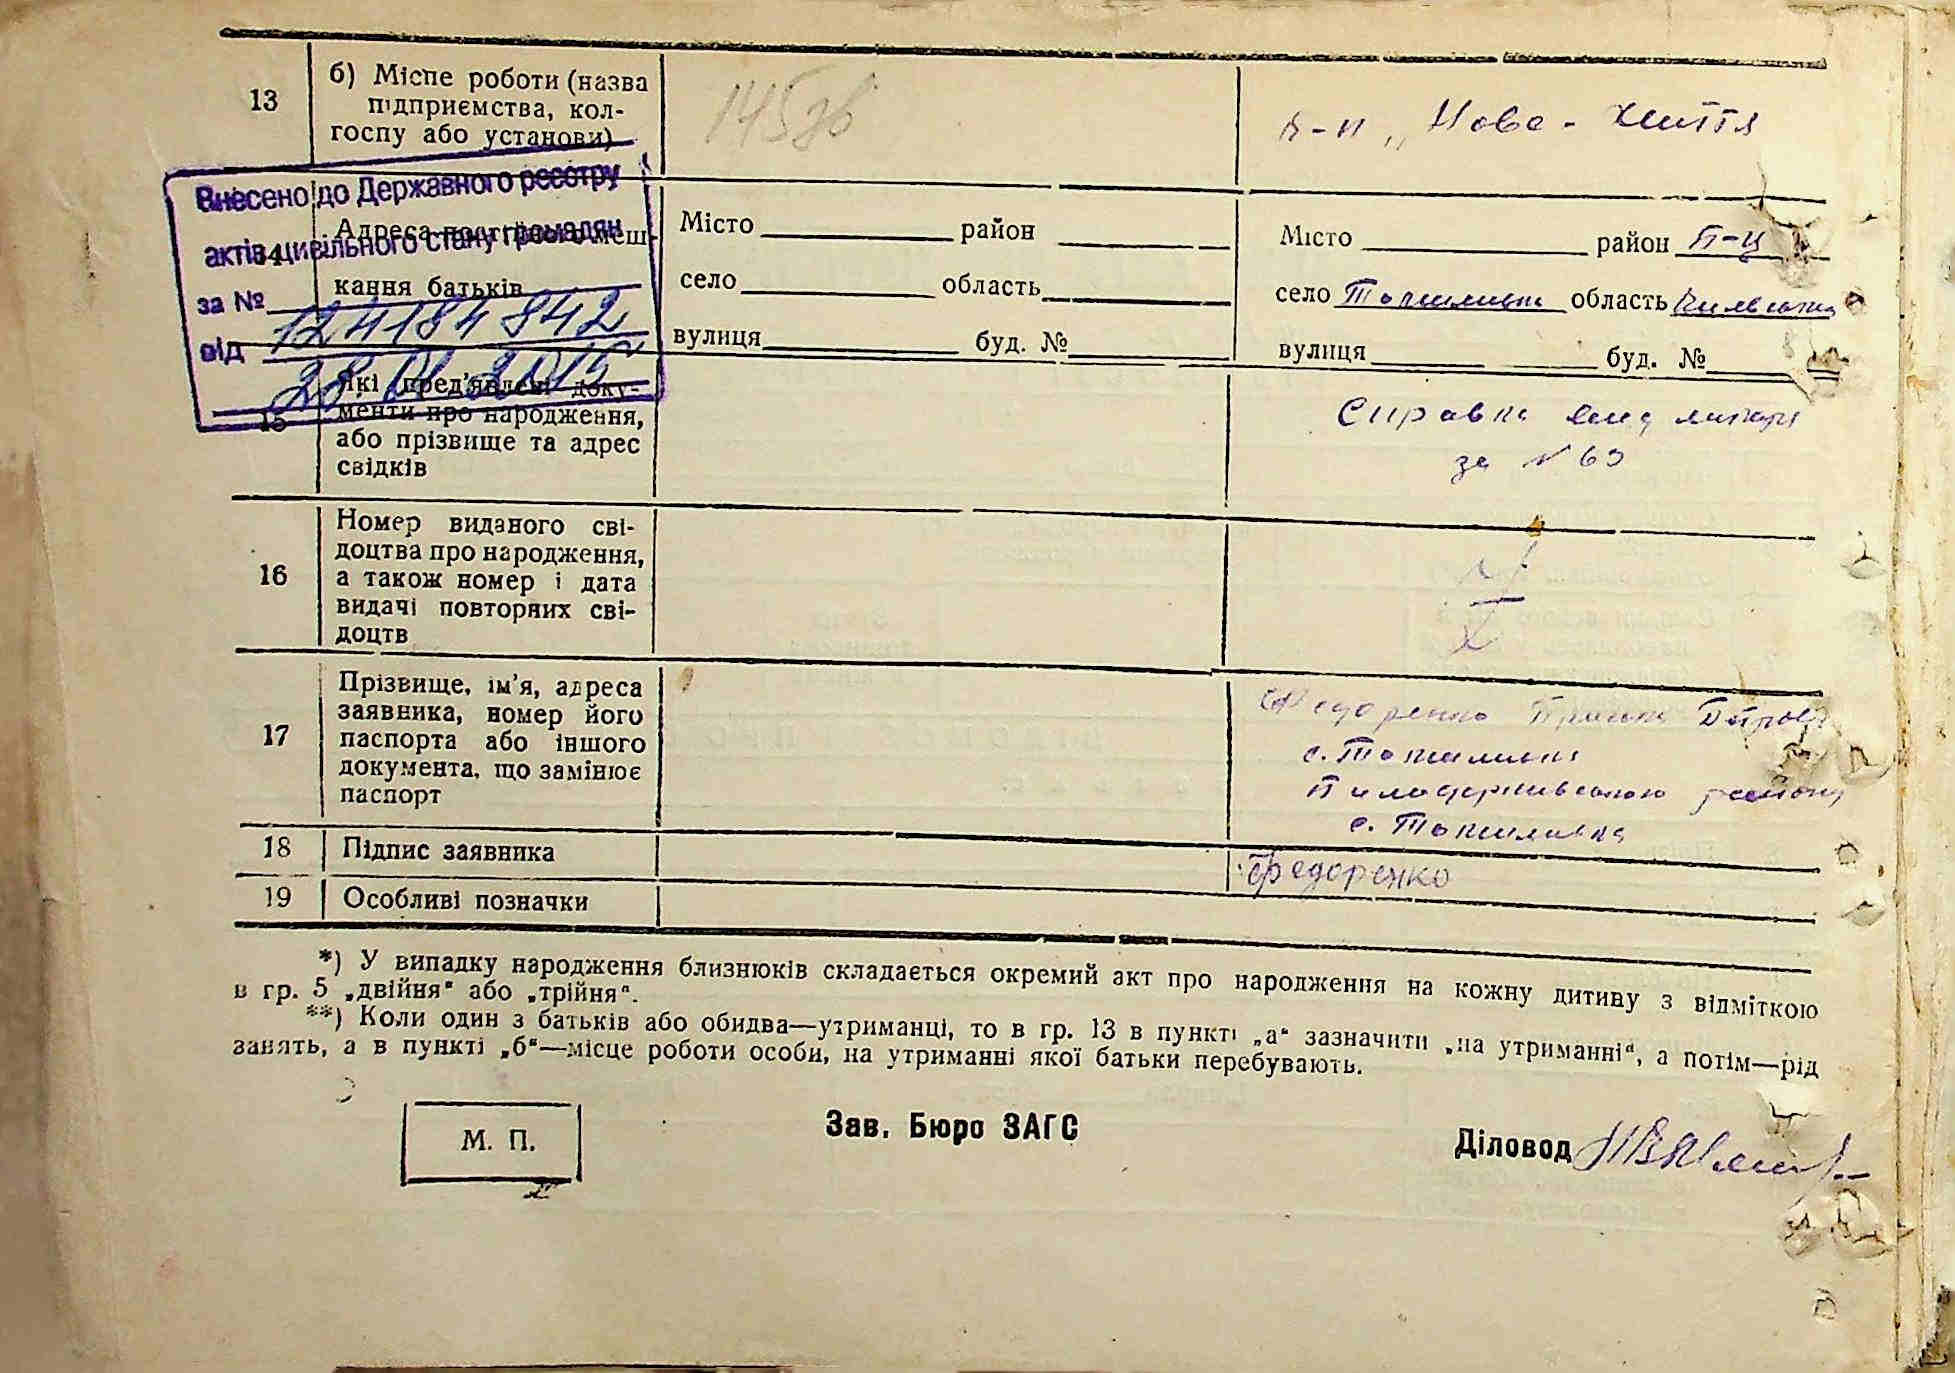 13
б) Місце роботи (назва
підприємства, кол-
госпу або установи)
145зв
к-п „Нове-Життя
Внесено до Державного реєстру
актів цивільного стану громадян
за № 124184842
від 28.01.2015
14
Адреса постійного меш-
кання батьків
Місто район
село область
вулиця буд. №
Місто район П-Ц
село Томилівка область Київська
вулиця буд. №
15
Які пред'явлені доку-
менти про народження,
або прізвище та адрес
свідків
Справка
за № 63
16
Номер виданого сві-
доцтва про народження,
а також номер і дата
видачі повторних сві-
доцтв
17
Прізвище, ім'я, адреса
заявника, номер його
паспорта або іншого
документа, що замінює
паспорт
Федоренко Петров
с. Томилівка
району
с. Томилівка
18
Підпис заявника
Федоренко
19
Особливі позначки
*) У випадку народження близнюків складається окремий акт про народження на кожну дитину з відміткою
в гр. 5 „двійня" або „трійня".
**) Коли один з батьків або обидва—утриманці, то в гр. 13 в пункті „а" зазначити „на утриманні", а потім—рід
занять, а в пункті „б"—місце роботи особи, на утриманні якої батьки перебувають.
М. П.
Зав. Бюро ЗАГС
Діловод